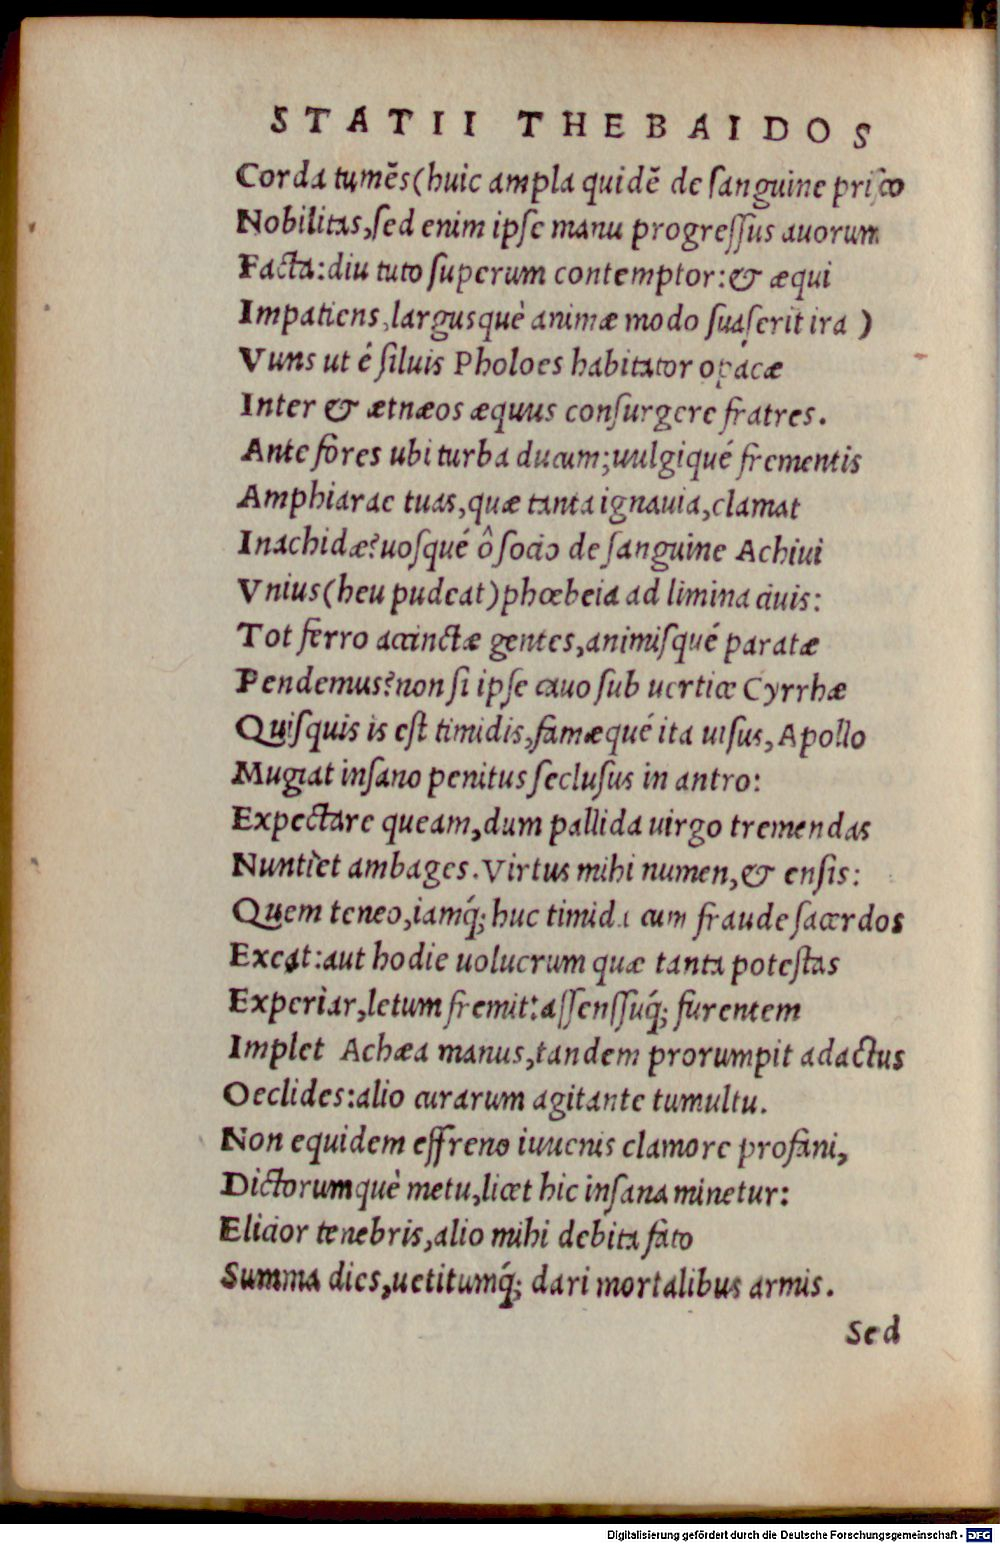 STATII THEBAIDOS
Corda tumēs(huic ampla quidē de ſanguine priſco
Nobilitas,ſed enim ipſe manu progreſſus auorum
Facta:diu tuto ſuperum contemptor:& æqui
Impatiens,largusquè animæ modo ſuaſerit ira )
Vuns ut é ſiluis Pholoes habitator opácæ
Inter & ætnæos æquus conſurgere fratres.
Ante fores ubi turba ducum;uulgiqué frementis
Amphiarae tuas,quæ tanta ignauia,clamat
Inachidæ?uoſqué ô ſocio de ſanguine Achiui
Vnius(heu pudeat)phœbeia ad limina ciuis:
Tot ferro accinctæ gentes,animiſqué paratæ
Pendemus?non ſi ipſe cauo ſub uertice Cyrrhæ
Quiſquis is eſt timidis,famæqué ita uiſus, Apollo
Mugiat inſano penitus ſecluſus in antro:
Expectare queam,dum pallida uirgo tremendas
Nuntiet ambages.Virtus mihi numen,& enſis:
Quem teneo,iamq́; huc timida cum fraude ſacerdos
Exeat:aut hodie uolucrum quæ tanta poteſtas
Experiar,letum fremit:aſſenſſuq́; furentem
Implet Achæa manus,tandem prorumpit adactus
Oeclides:alio curarum agitante tumultu.
Non equidem effreno iuuenis clamore profani,
Dictorumquè metu,licet hic inſana minetur:
Elicior tenebris,alio mihi debita fato
Summa dies,uetitumq́; dari mortalibus armis.
Sed
Digitalisierung gefördert durch die Deutsche Forschungsgemeinschaft - DFG